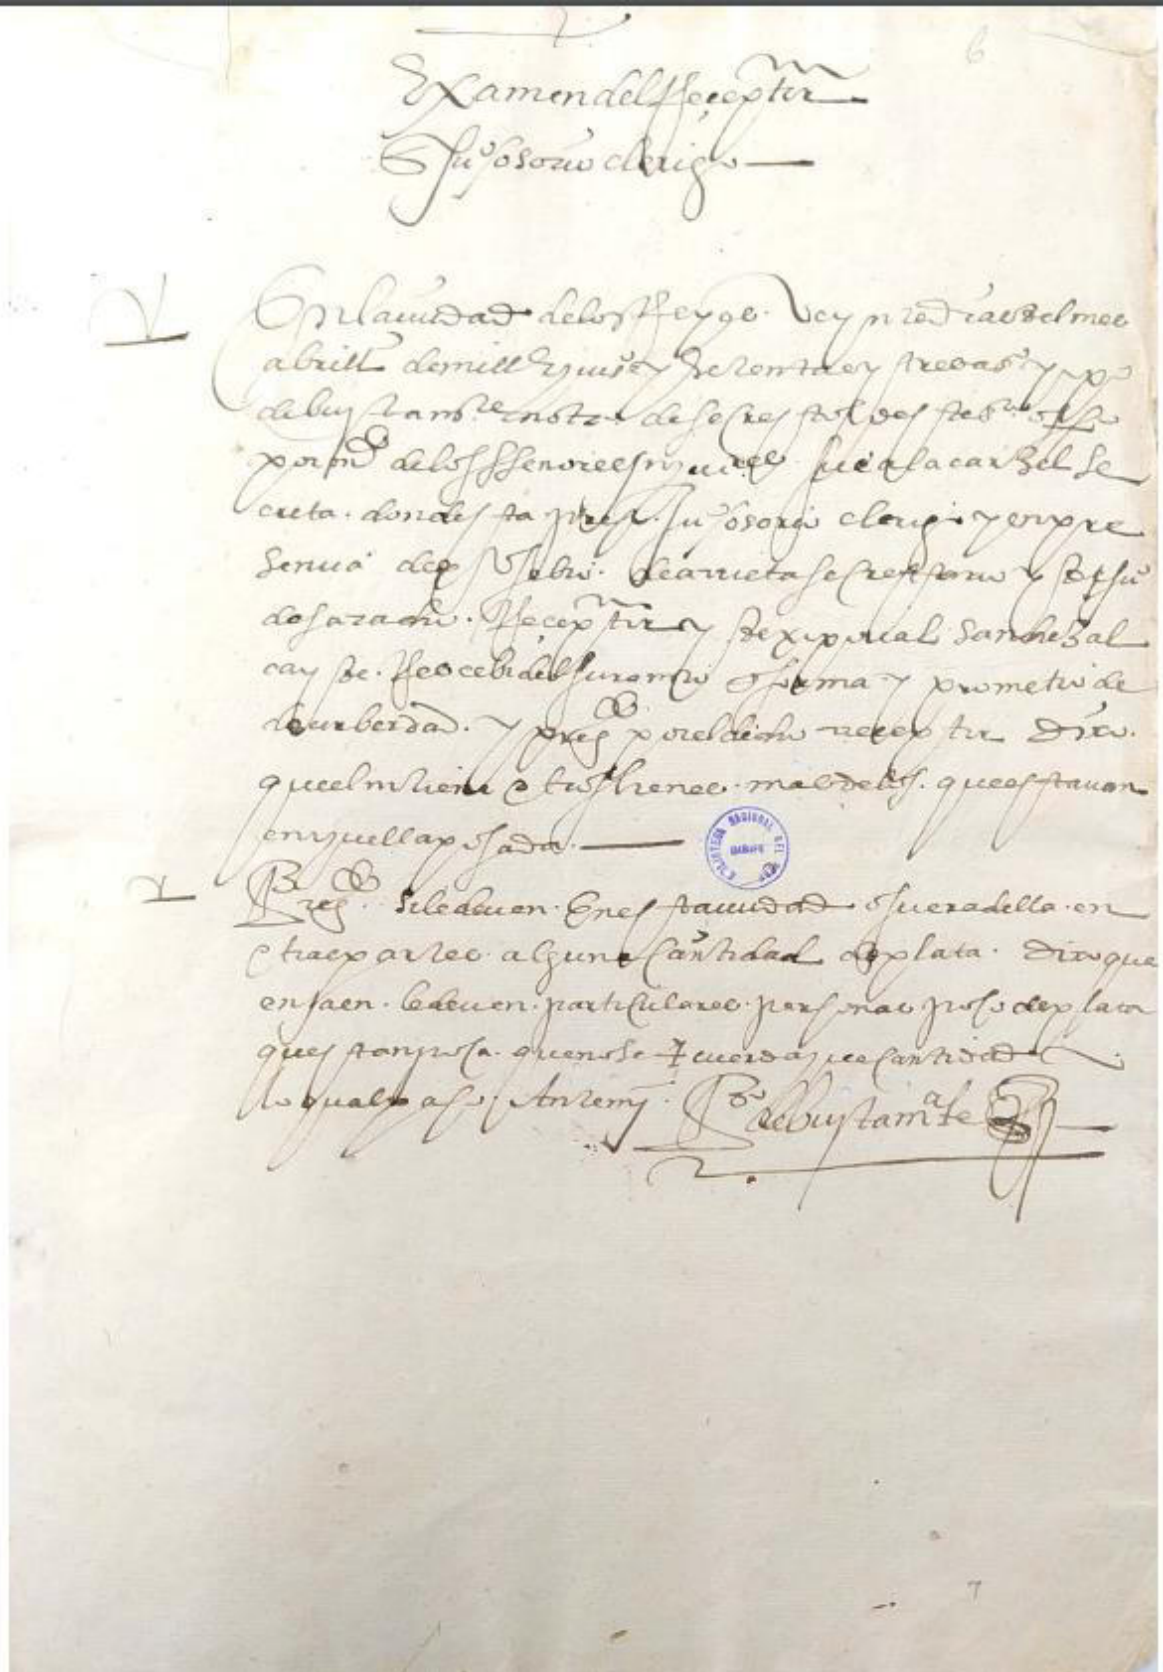 6
Examen del Reçeptor
Juº osorio clerigo
En la ciudad de los Reyes. veynte dias del mes
abrill de mill y quisº y setenta y tres aºs yo pº
de bustamte notº de secrestos deste stº offº
por mdº de los SSenores ynqui.res fue a la carzel se
creta. donde esta preso. juº osorio clerigo y en pre
sencia de eusebio. de arrieta secretario y de juº
de saracho. Reçeptor y de xpoual sanchez al
cayde. Recebi del juramto en forma y prometio de
dezir berdad. y pregº por el dicho receptor Dixo.
que el no tiene otros bienes. mas de los. que estauan
en aquella posada.
Pregº. si le deuen. En esta ciudad o fuera della. en
otras partes alguna Cantidad de plata. Dixo que
en jaen. le deuen. particulares. personas pesos de plata
que no se acuerda que cantidad
lo qual paso. Ante mj. Pº de bustamate
BIBLIOTECA NACIONAL DEL PERU
7